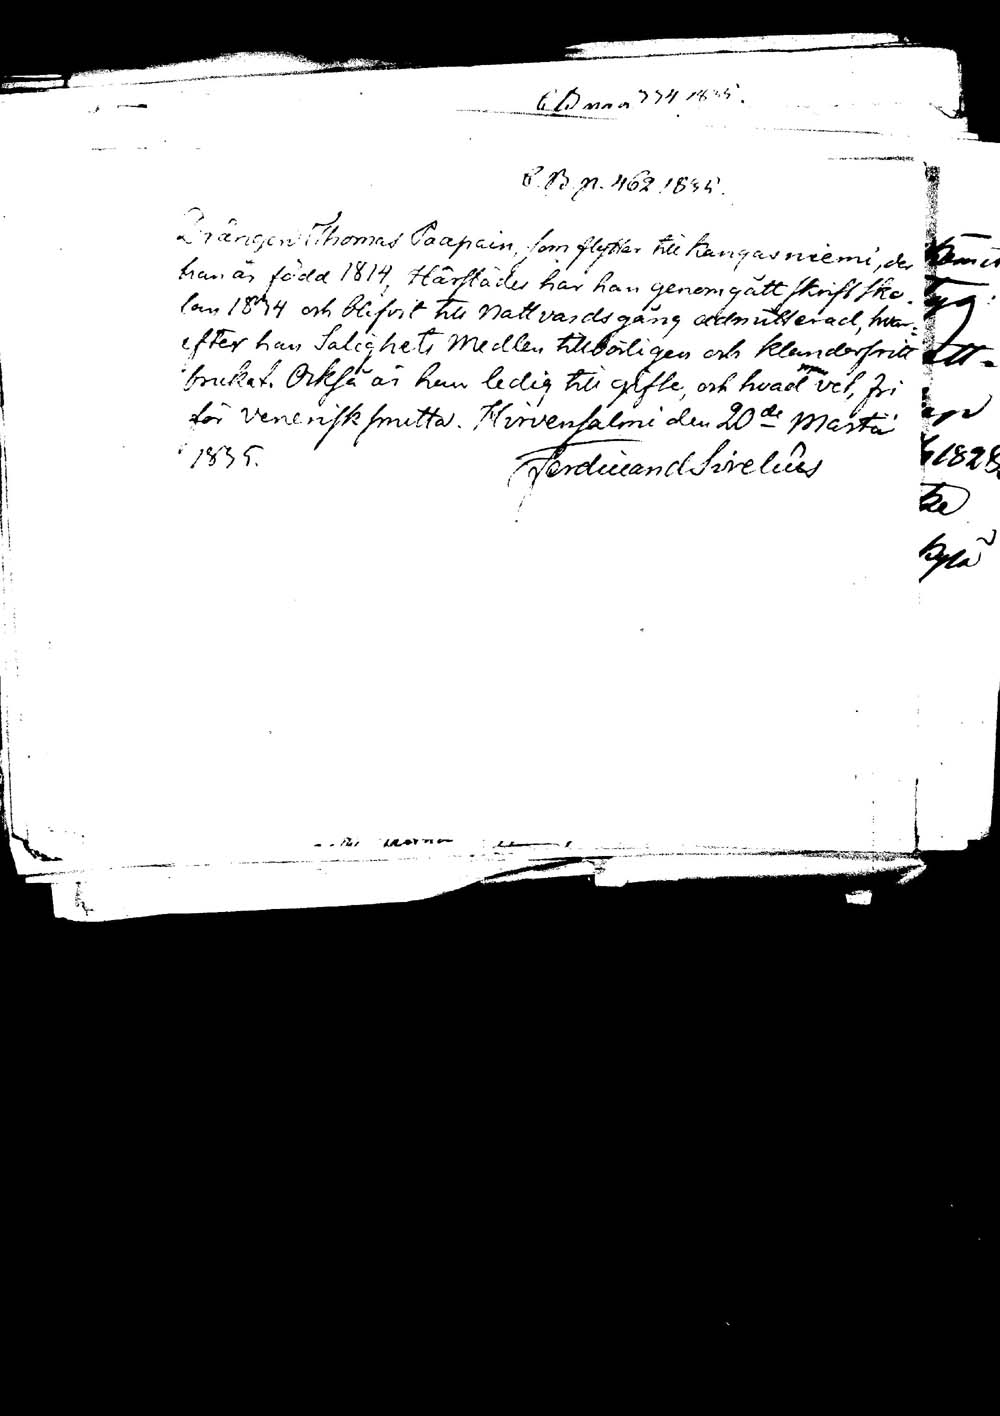 774 1835.
C. B. p. 462 1835.
Drängen Thomas Paapain, som flytter till Kangasniemi, der
han är född 1814, Härstädes har han genomgått skriftsko-
lan 1834 och blifvit till Nattvardsgång admitterad, hvar-
efter han Salighets Medlen tillbörligen och klanderfritt
brukat. Också är han ledig till gifte, och hvad man vet, fri
för venerisk smitta. Hirvensalmi den 20de Martii
1835.
Ferdinand Sirelius
tt-
1828
ke
kylä